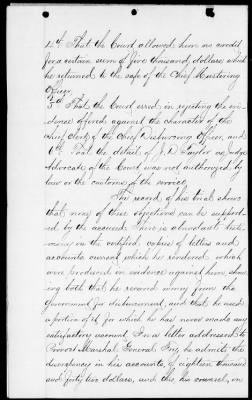 4th That the Court allowed him no credit
for a certain sum of five thousand dollars which
he returned to the safe of the Chief Mustering
Officer.
5th That the Court erred in rejecting the evi-
dence offered against the character of the
Chief Clerk of the Chief Disbursing Officer, and
6th That the detail of J. D. Taylor as Judge
Advocate of the Court was not authorized by
law or the customs of the service.
The record of his trial shows
that none of these objections can be support-
ed by the accused. There is abundant testi-
mony in the certified copies of letters and
accounts current which he rendered which
were produced in evidence against him, show-
ing both that he received money from the
government for disbursement, and that he used
a portion of it for which he has never made any
satisfactory account. In a letter addressed to
Provost Marshal General Fry, he admits the
discrepancy in his accounts, of eighteen thousand
and forty two dollars, and this his counsel, on